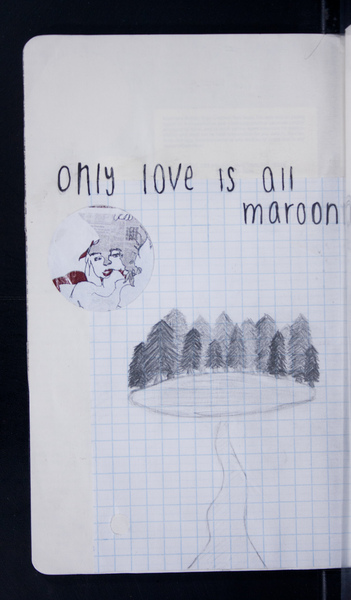 only love is all
maroon